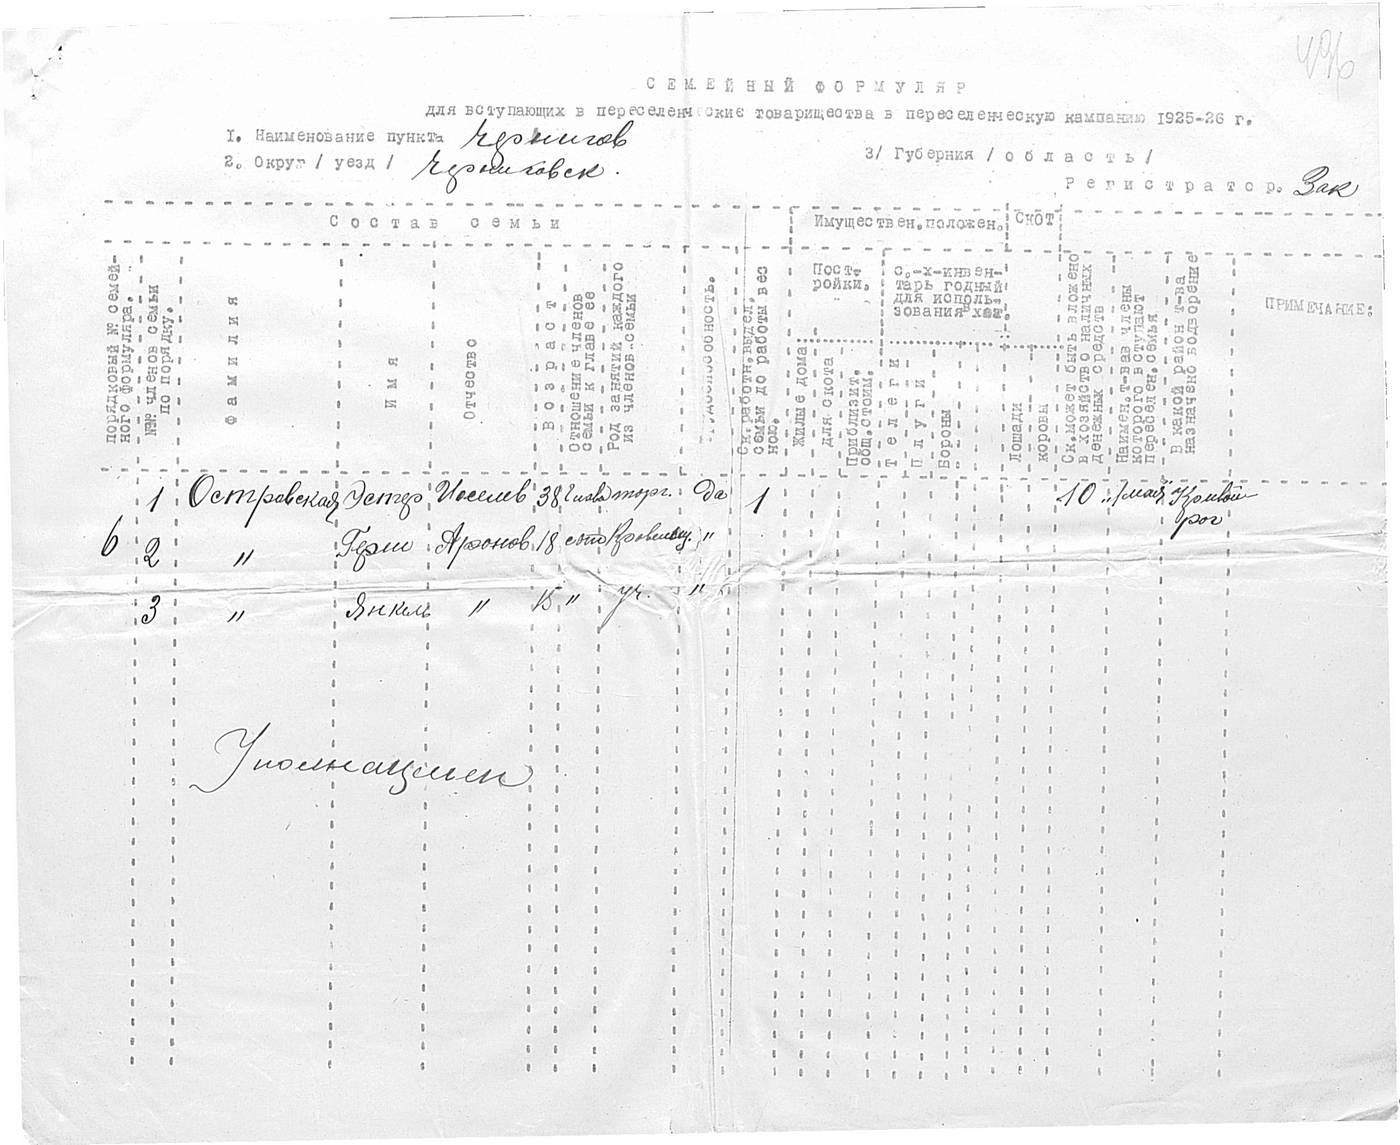 496
СЕМЕЙНЫЙ ФОРМУЛЯР
для вступающих в переселенческие товарищества в переселенческую кампанию 1925-26 г.
1. Наименование пункта Чернигов
2. Округ / уезд / Черниговск.
3/ Губерния / область/
Регистратор. Зак
Состав семьи
Имуществен.положен.
Скот
порядковый № семей-
ного формуляра.
№№ членов семьи
по порядку.
Фамилия
Имя
Отчество
Возраст
Отношение членов
семьи к главе ее
Род занятий каждого
из членов семьи
Ск.работн.выдел.
семьи до работы вес
ною.
Пост-
ройки.
с.-х-инвен-
тарь годный
для исполь-
зования в хоз.
Жилые дома
для скота
Приблизит.
общ.стоим.
Телеги
Плуги
Бороны
Лошади
коровы
Ск.может быть вложено
в хозяйство наличных
денежных средств
Наимен.т-ва в члены
которого вступают
переселен.семья
В какой район т-ва
назначено водворение
ПРИМЕЧАНИЕ:
1 Островская Эстер Иоселев 38 глава торг. да 1 10 "1 мая" Кривой
рог
6 2 " Герш Аронов 18 "
3 " Янкель " 15 " уч. "